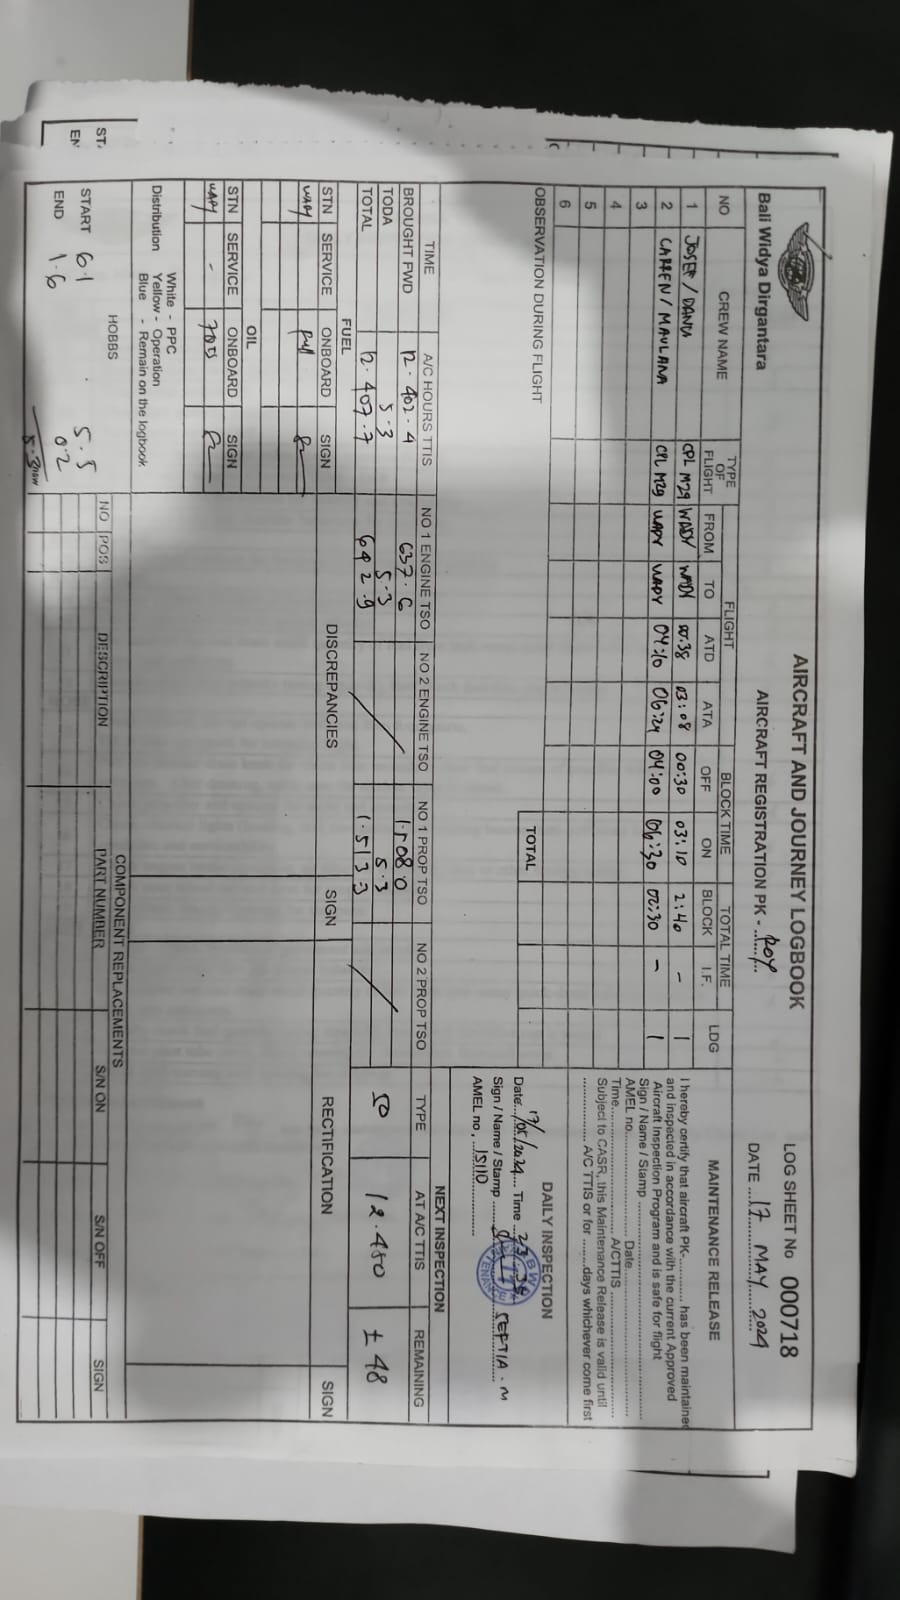 AIRCRAFT AND JOURNEY LOGBOOK
LOG SHEET No 000718
Bali Widya Dirgantara
AIRCRAFT REGISTRATION PK - ROY
DATE 17 MAY 2024
NO CREW NAME TYPE OF FLIGHT FLIGHT BLOCK TIME TOTAL TIME LDG
FROM TO ATD ATA OFF ON BLOCK I.F.
1 JOSEF / DANU CPL M29 WADY WADY 00:38 03:08 00:30 03:10 2:40 - 1
2 / MAULANA CPL M29 WADY WADY 04:10 06:24 04:00 06:30 02:30 - 1
3
4
5
6
MAINTENANCE RELEASE
I hereby certify that aircraft PK-........... has been maintained
and inspected in accordance with the current Approved
Aircraft Inspection Program and is safe for flight
Sign / Name / Stamp
AMEL no. Date
Time A/CTTIS
Subject to CASR, this Maintenance Release is valid until
A/C TTIS or for ........days whichever come first
OBSERVATION DURING FLIGHT
TOTAL
DAILY INSPECTION
Date 17/05/2024 Time
Sign / Name / Stamp SEPTIA . M
AMEL no, 15110
TIME A/C HOURS TTIS NO 1 ENGINE TSO NO 2 ENGINE TSO NO 1 PROP TSO NO 2 PROP TSO
BROUGHT FWD 12.402.4 637.6 1.508.0
TODA 5.3 5.3 5.3
TOTAL 12.407.7 642.9 1.513.3
NEXT INSPECTION
TYPE AT A/C TTIS REMAINING
50 12.450 ± 48
FUEL
STN SERVICE ONBOARD SIGN
WADY full
OIL
STN SERVICE ONBOARD SIGN
WADY -
DISCREPANCIES SIGN RECTIFICATION SIGN
Distribution White - PPC
Yellow - Operation
Blue - Remain on the logbook
HOBBS
START 6.1 5.5
END 1.6 0.2
COMPONENT REPLACEMENTS
NO POS DESCRIPTION PART NUMBER S/N ON S/N OFF SIGN